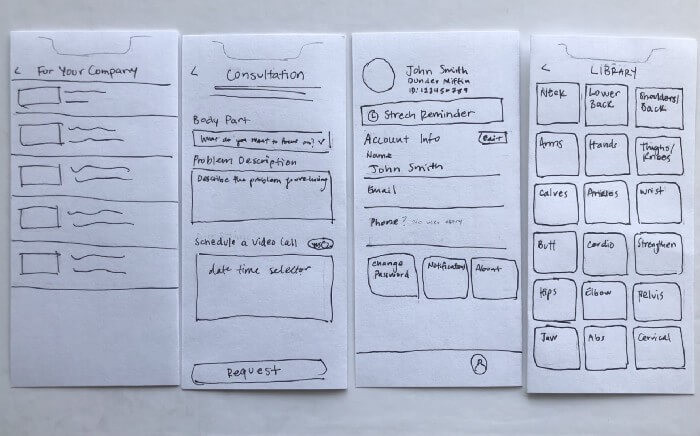 < For Your Company
< Consultation
Body Part
What do you want to focus on?
Problem Description
Describe the problem you're having
Schedule a Video Call
date time selector
Request
John Smith
Dunder Mifflin
Strech Reminder
Account Info
Edit
Name
John Smith
Email
Phone?
Change
Password
Notifications
About
< LIBRARY
Neck
Lower
Back
Shoulders/
Back
Arms
Hands
Thighs/
Knees
Calves
Ankles
Wrist
Butt
Cardio
Strengthen
Hips
Elbow
Pelvis
Jaw
Abs
Cervical